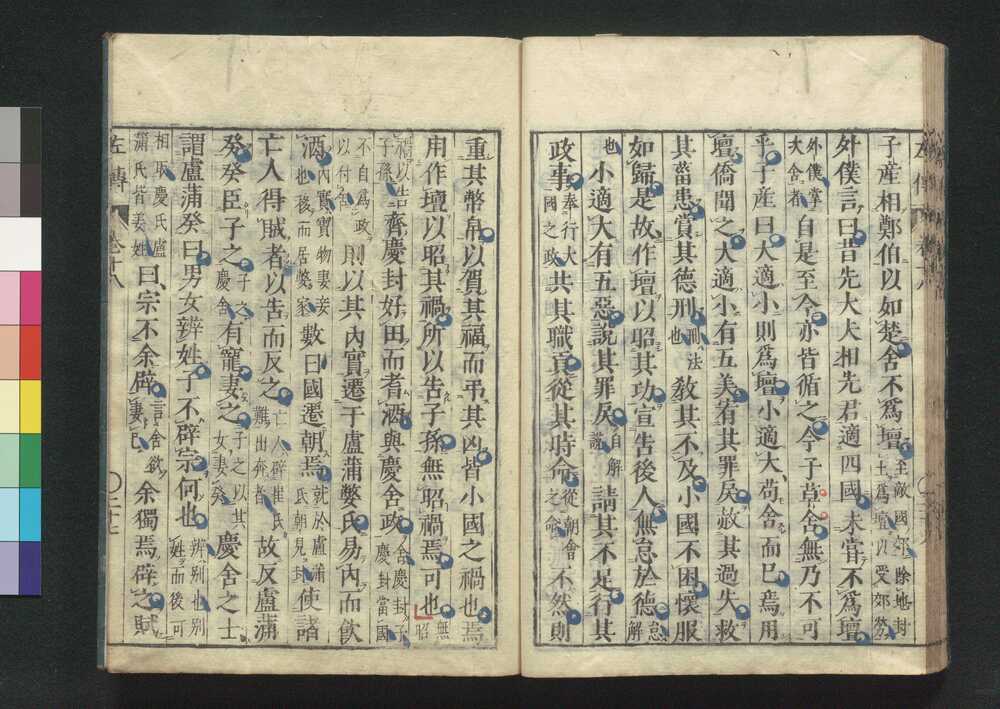 子產相鄭伯以如楚舍不爲壇至敵國郊除地封土爲壇以受郊勞
外僕言曰昔先大夫相先君適四國未嘗不爲壇
外僕掌次舍者自是至今亦皆循之今子草舍無乃不可
乎子產曰大適小則爲壇小適大苟舍而已焉用
壇僑聞之大適小有五美宥其罪戾赦其過失救
其菑患賞其德刑刑法也敎其不及小國不困懷服
如歸是故作壇以昭其功宣告後人無怠於德怠解
也小適大有五惡說其罪戾自解說請其不足行其
政事奉行大國之政共其職貢從其時命從朝會之命不然則
重其幣帛以賀其福而弔其凶皆小國之禍也焉
用作壇以昭其禍所以告子孫無昭禍焉可也無昭
禍以告子孫齊慶封好田而耆酒與慶舍政舍慶封子慶封當國
不自爲政以付舍則以其內實遷于盧蒲嫳氏易內而飮
酒內實寶物妻妾也移而居嫳家數日國遷朝焉就於盧蒲氏朝見封使諸
亡人得賊者以告而反之亡人辟崔氏難出奔者故反盧蒲
癸癸臣子之子之慶舍有寵妻之子之以其女妻癸慶舍之士
謂盧蒲癸曰男女辨姓子不辟宗何也辨別也別姓而後可
相取慶氏盧蒲氏皆姜姓曰宗不余辟言舍欲妻己余獨焉辟之賦
左傳 卷十八